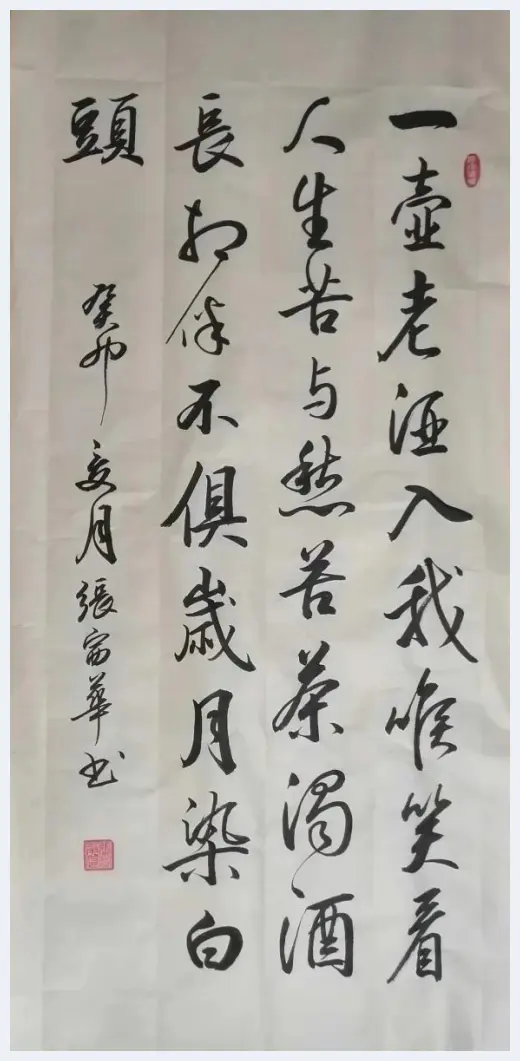 一壺老酒入我喉笑看
人生苦与愁苦茶濁酒
長相伴不俱歲月染白
頭
癸卯 月張富華书